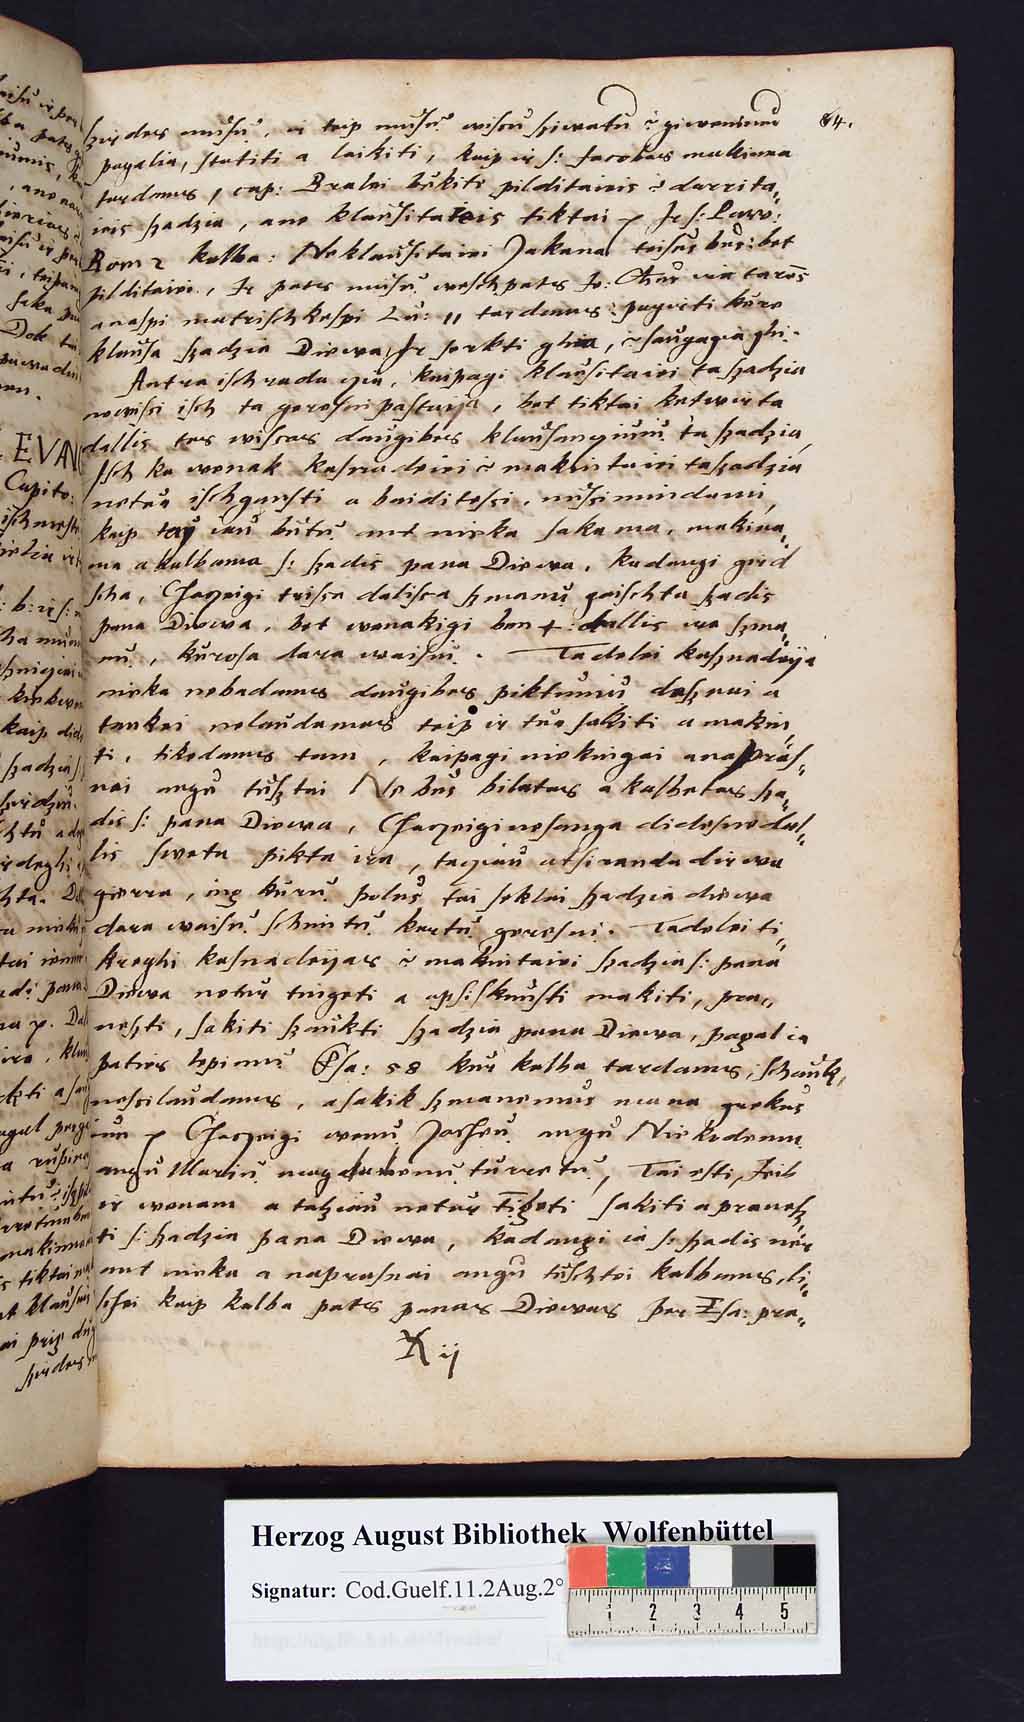 84.
szirdes musů, ir teip musů wisů sziwatu ir giwenimu
pagalia, statiti a laikiti, kaip ir s: Jacobas makinna
tardams 1 cap: Bralei bukiti pilditaieis ir darrita„
ieis szadzia, ane klausitaieis tiktai ꝛc Jr s: Paw:
Rom 2 kalba: Neklausitaiei Zakana teisus bus: bet
pilditaiei, Jr pats musů weschpats Je: Chus wia tarẽs
anaspi matrischkaspi Lu: 11 tardams: pagirti kure
klausa szadzia Diewa, Jr serkti ghia, ir saugagia ghi.
Antra ischrada gia, kaipagi klausitaiei ta szadzia
newissi isch ta geresni pastuja, bet tiktai ketwirta
dallis tes wisas daugibes klausancziuiu ta szadzia,
Jsch ka wenak kasnadeiei ir makintaiei ta szadzia
netur ischgansti a baiditessi, nussimindami,
kaip tay iau butu ant nieka sakama, makina„
ma a kalbama s: szadis pana Diewa, kadangi gird
scha, Chaczeigi trisa dalisa szmaniu gaischta szadis
pana Diewa, bet wenakigi ben 4: dallis ira szma„
niu, kurosa dara waisiu. Tadelei kasznadeija
nieka nebadams daugibes piktuniu desznai a
tankei nelaudamas teip ir tur sakiti a makin„
ti, tikedams tam, kaipagi niekingai ana pras„
nai angu tusztai Ne bus bilatas a kalbetas sza„
dis s: pana Diewa, Chaczeigi nesanga didesne dal„
lis sweta pikta ira, tacziau atsiranda dirwa
gierra, ing kuriu polus tai seklai szadzia diewa
dara waisiu schimtu kartu geresni. Tadelei ti„
kreghi kasnadeijas ir makintaiei szadzia s: pana
Diewa netur tingeti a apsiskunsti makiti, pra„
neszti, sakiti szaukti szadzia pana Diewa, pagal ia
paties lepimu Esa: 58 kur kalba tardams, Schauk,
nessilaudams, a sakik szmanemus mana grekus
iun ꝛc Chaczeigi wenu Josheu angu Nickdema
angu Mariu magdalenu turretu, Tai esti, Jeib
ir wenam a tacziau netur tigeti sakiti a pranesz
ti s: szadzia pana Diewa, kadangi ia s: szadis nėr
ant nieka a naprasnai angu tuschtai kalbamas, li„
schei kaip kalba pats panas Diewas per Esa: pra„
X ij
Herzog August Bibliothek Wolfenbüttel
Signatur: Cod.Guelf.11.2Aug.2°
1 2 3 4 5